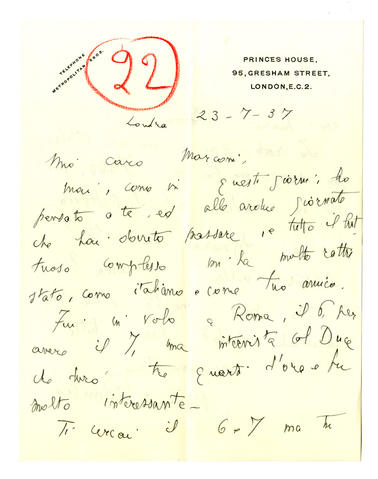 TELEPHONE
METROPOLITAN
22
PRINCES HOUSE,
95, GRESHAM STREET,
LONDON, E.C.2.
Londra 23-7-37
Mio caro Marconi,
mai, come in questi giorni, ho
pensato a te, ed alle ardue giornate
che hai dovuto passare, e tutto il
tuoso complesso mi ha molto rattri
stato, come italiano e come tuo amico.
Fui in volo a Roma, il 6, per
avere il 7, una intervista col Duce
che durò tre quarti d'ora e fu
molto interessante_
Ti cercai il 6 e 7 ma tu